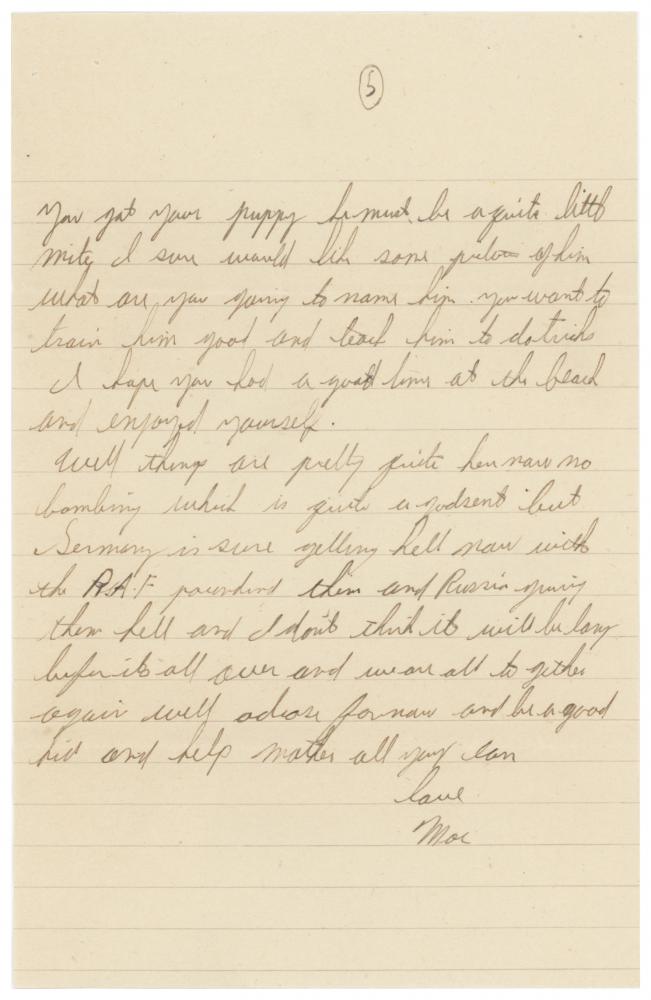 5
You got your puppy he must be a quite little
mity I sure would like some picture of him
what are you going to name him. you want to
train him good and teach him to do tricks
I hope you had a good time at the beach
and enjoyed yourself.
Well things are pretty quite here now no
bombing which is quite a godsent but
Germany is sure getting hell now with
the R.A.F pounding them and Russia giving
them hell and I don't think it will be long
before its all over and we are all to gether
again well adiose for now and be a good
kid and help mother all you can
love
Moe